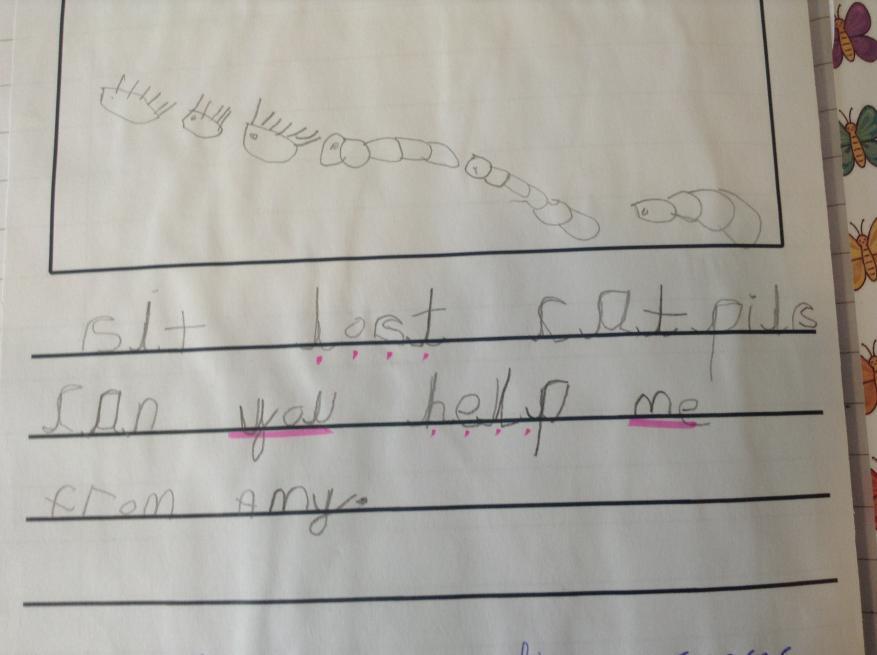 sit lost catpils
can you help me
from Amy.